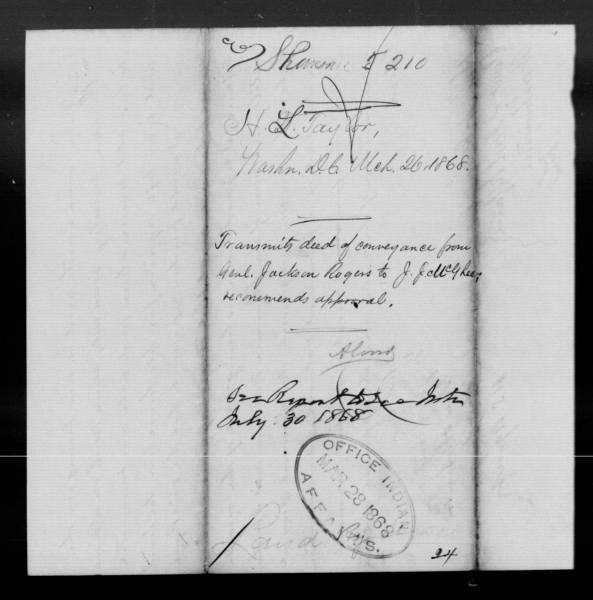 Shawnee 210
H. L. Taylor,
Washn. D.C. Mch. 26. 1868.
Transmits deed of conveyance from
Genl. Jackson Rogers to J. J. McGhee;
recommends approval.
See Report to Sec Intr
July 30 1868
OFFICE INDIAN
MAR 28 1868
AFFAIRS.
Land
24